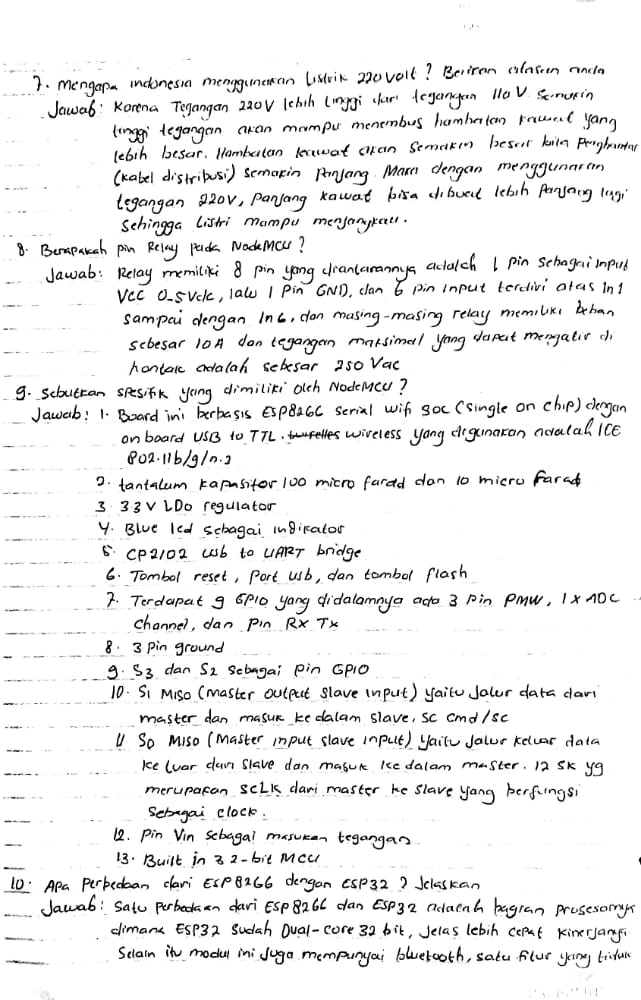 7. Mengapa indonesia menggunakan listrik 220 volt? Berikan alasan anda
Jawab: Karena Tegangan 220V lebih tinggi dari tegangan 110 V. Semakin
tinggi tegangan akan mampu menembus hambatan kawat yang
lebih besar. Hambatan kawat akan semakin besar bila Penghantar
(kabel distribusi) semakin Panjang. Maka dengan menggunakan
tegangan 220V, Panjang kawat bisa dibuat lebih Panjang lagi
sehingga listri mampu menjangkau.
8. Berapakah pin Relay pada NodeMCU?
Jawab: Relay memiliki 8 pin yang diantaranya adalah 1 pin sebagai input
VCC 0-5Vdc, lalu 1 Pin GND, dan 6 pin input terdiri atas In1
sampai dengan In6, dan masing-masing relay memiliki beban
sebesar 10A dan tegangan maksimal yang dapat mengalir di
kontak adalah sebesar 250 Vac
9. Sebutkan spesifik yang dimiliki oleh NodeMCU?
Jawab: 1. Board ini berbasis ESP8266 serial wifi SOC (single on chip) dengan
on board USB to TTL. wireless yang digunakan adalah ICE
802.11b/g/n.
2. tantalum kapasitor 100 micro farad dan 10 micro farad
3. 33V LDo regulator
4. Blue led sebagai indikator
5. CP2102 usb to UART bridge
6. Tombol reset, Port usb, dan tombol flash
7. Terdapat 9 GPIO yang didalamnya ada 3 Pin PMW, 1 x ADC
Channel, dan Pin RX Tx
8. 3 Pin ground
9. S3 dan S2 sebagai pin GPIO
10. S1 MISO (Master output Slave input) yaitu Jalur data dari
master dan masuk ke dalam slave, sc cmd/sc
11 So MISO (Master input slave input) yaitu Jalur keluar data
ke luar dari Slave dan masuk ke dalam master. 12 SK yg
merupakan SCLK dari master ke slave yang berfungsi
sebagai clock.
12. Pin Vin sebagai masukan tegangan
13. Built in 3 2-bit MCU
10. Apa Perbedaan dari ESP8266 dengan ESP32? Jelaskan
Jawab: Satu Perbedaan dari ESP8266 dan ESP32 adalah bagian prosesornya
dimana ESP32 sudah Dual-core 32 bit, jelas lebih cepat kinerjanya
Selain itu modul ini Juga mempunyai bluetooth, satu fitur yang tidak